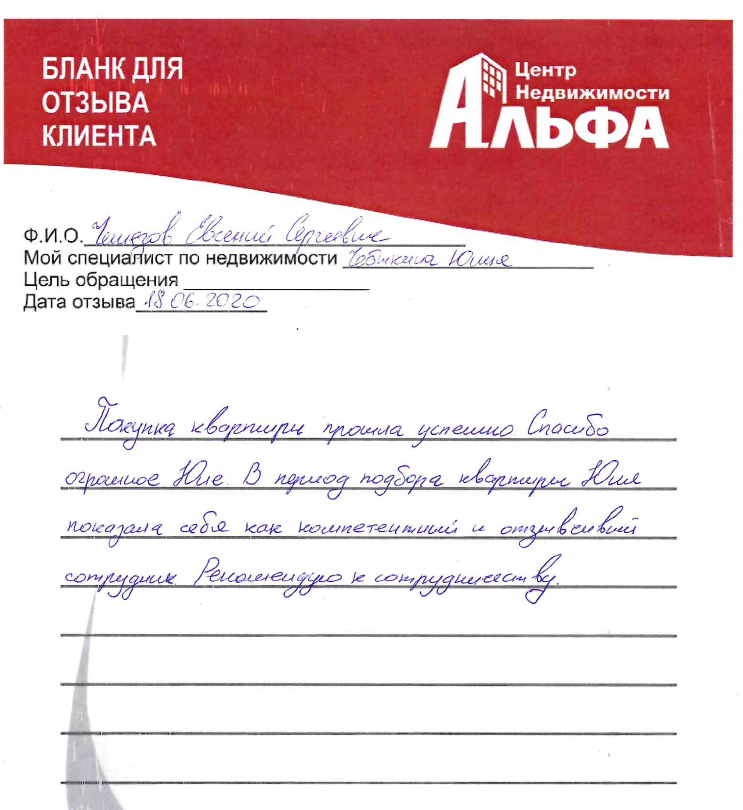 БЛАНК ДЛЯ
ОТЗЫВА
КЛИЕНТА
Центр
Недвижимости
АЛЬФА
Ф.И.О. Евгений Сергеевич
Мой специалист по недвижимости Чебыкина Юлия
Цель обращения
Дата отзыва 18.06.2020
Покупка квартиры прошла успешно. Спасибо
огромное Юле. В период подбора квартиры Юлия
показала себя как компетентный и отзывчивый
сотрудник. Рекомендую к сотрудничеству.